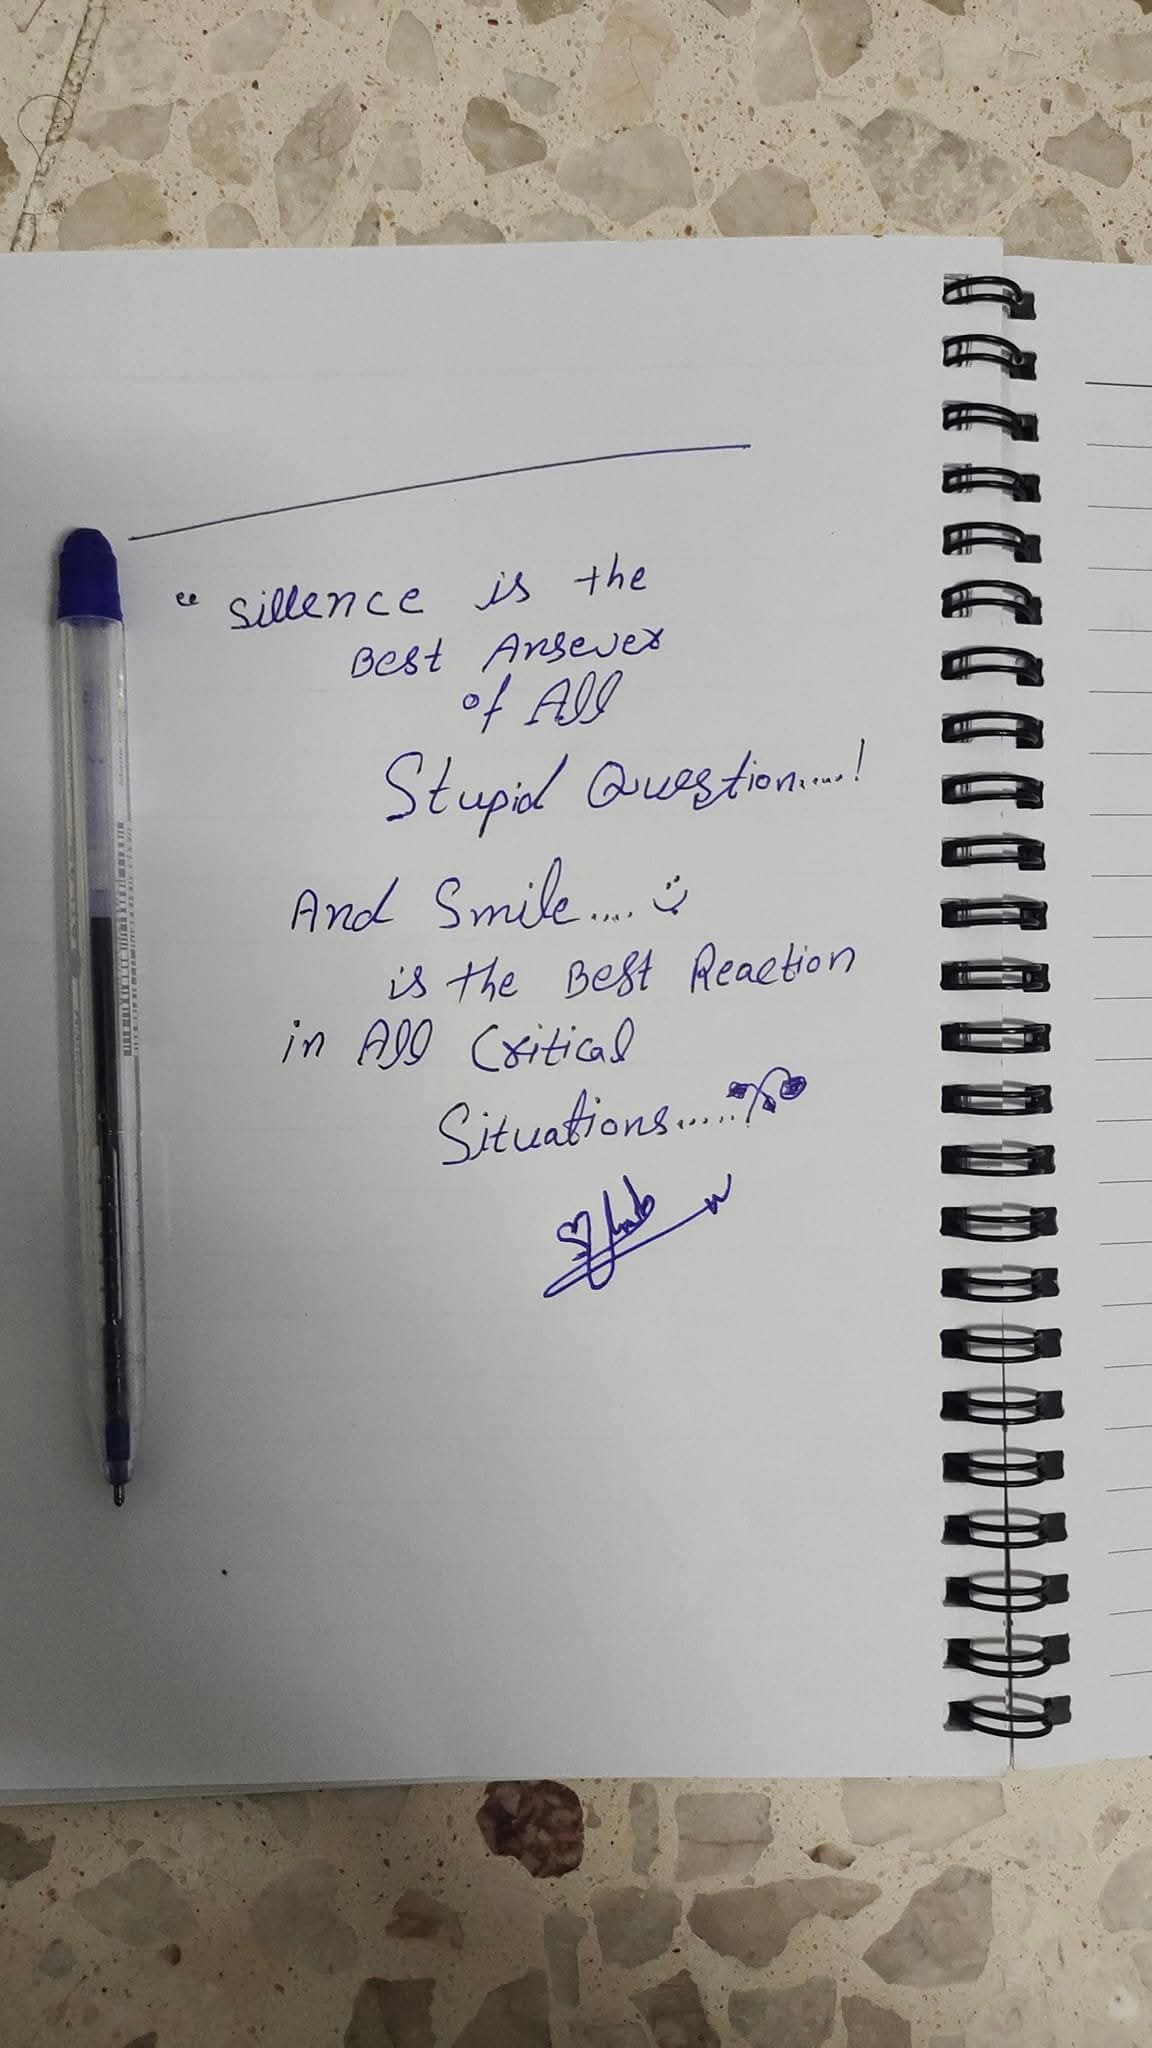 “ Sillence is the
Best Ansever
of All
Stupid Question.....!
And Smile.... :)
is the Best Reaction
in All Critical
Situations.....